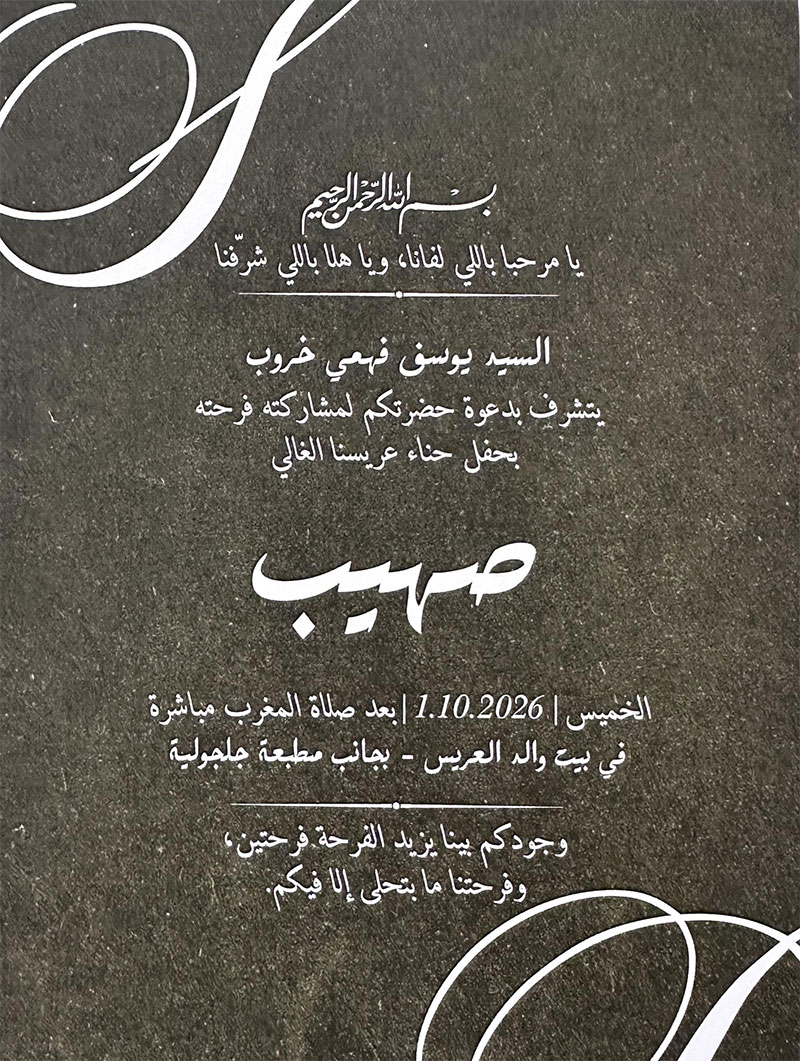 بسم الله الرحمن الرحيم
يا مرحبا باللي لفانا، ويا هلا باللي شرّفنا
السيد يوسف فهمي خروب
يتشرف بدعوة حضرتكم لمشاركته فرحته
بحفل حناء عريسنا الغالي
صهيب
الخميس | 1.10.2026 | بعد صلاة المغرب مباشرة
في بيت والد العريس - بجانب مطبعة جلجولية
وجودكم بينا يزيد الفرحة فرحتين،
وفرحتنا ما بتحلى إلا فيكم.